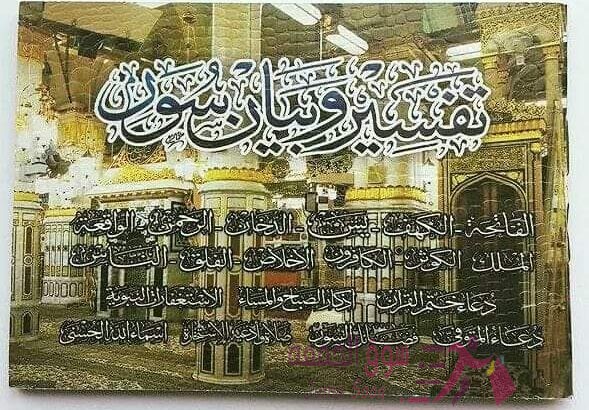 تفسير وبيان سور
الفاتحة - الكهف - يس - الدخان - الرحمن - الواقعة
الملك الكوثر - الكافرون الإخلاص - الفلق - الناس
دعاء ختم القرآن أذكار الصباح والمساء الاستغفارات النبوية
دعاء المتوفي فضائل السور صلاة ودعاء الاستخارة أسماء الله الحسنى